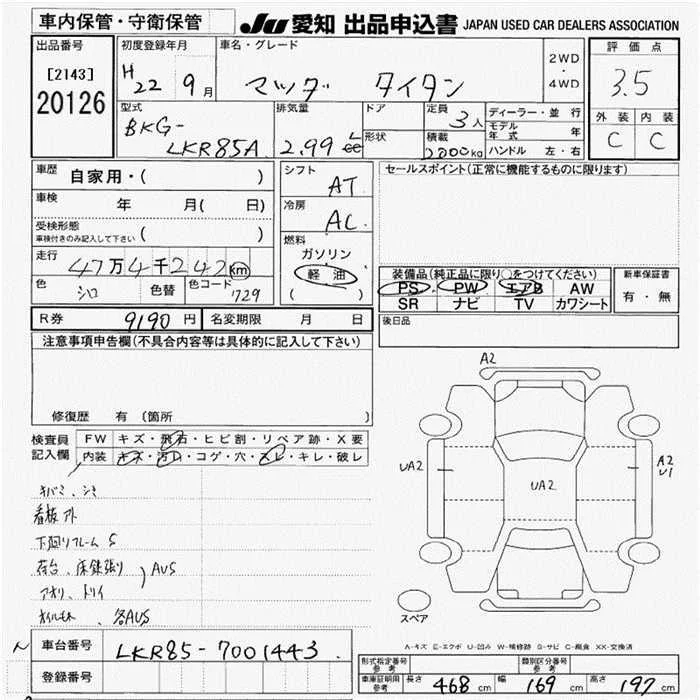 車内保管・守衛保管
JU 愛知 出品申込書 JAPAN USED CAR DEALERS ASSOCIATION
出品番号
[2143]
20126
初度登録年月
H22 9月
車名・グレード
マツダ タイタン
2WD
・
4WD
評価点
3.5
外装 内装
C C
型式
BKG-
LKR85A
排気量
2.99 L cc
ドア
形状
定員
3人
積載
2000kg
ディーラー・並行
モデル年式 年
ハンドル 左・右
車歴
自家用・( )
車検 年 月( 日)
受検形態
車検付きのみ記入して下さい ( )
走行
47万4千242km
色 シロ 色替 色コード 729
シフト
AT
冷房
AC
燃料
ガソリン
軽油
( )
セールスポイント(正常に機能するものに限ります)
装備品(純正品に限り○をつけてください)
PS PW エアB AW
SR ナビ TV カワシート
新車保証書
有・無
R券 9190円 名変期限 月 日
後日品
注意事項申告欄(不具合内容等は具体的に記入して下さい)
修復歴 有 (箇所
検査員記入欄
FW キズ・飛石・ヒビ割・リペア跡・X要
内装 キズ・汚レ・コゲ・穴・スレ・キレ・破レ
キバミ、シミ
看板アト
下廻リフレームS
荷台、床鉄張り AUS
アオリ、トリイ
オイルモレ、各AUS
A2
UA2
UA2
A2
U1
スペア
A-キズ E-エクボ U-凹み W-補修跡 S-サビ C-腐食 XX-交換済
車台番号 LKR85-7001443
登録番号
形式指定番号 参考 類別区分番号 参考
車庫証明用参考 長さ 468cm 幅 169cm 高さ 197cm